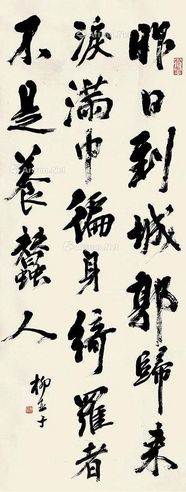 昨日到城郭歸來
淚滿巾徧身綺羅者
不是養蠶人
柳亞子